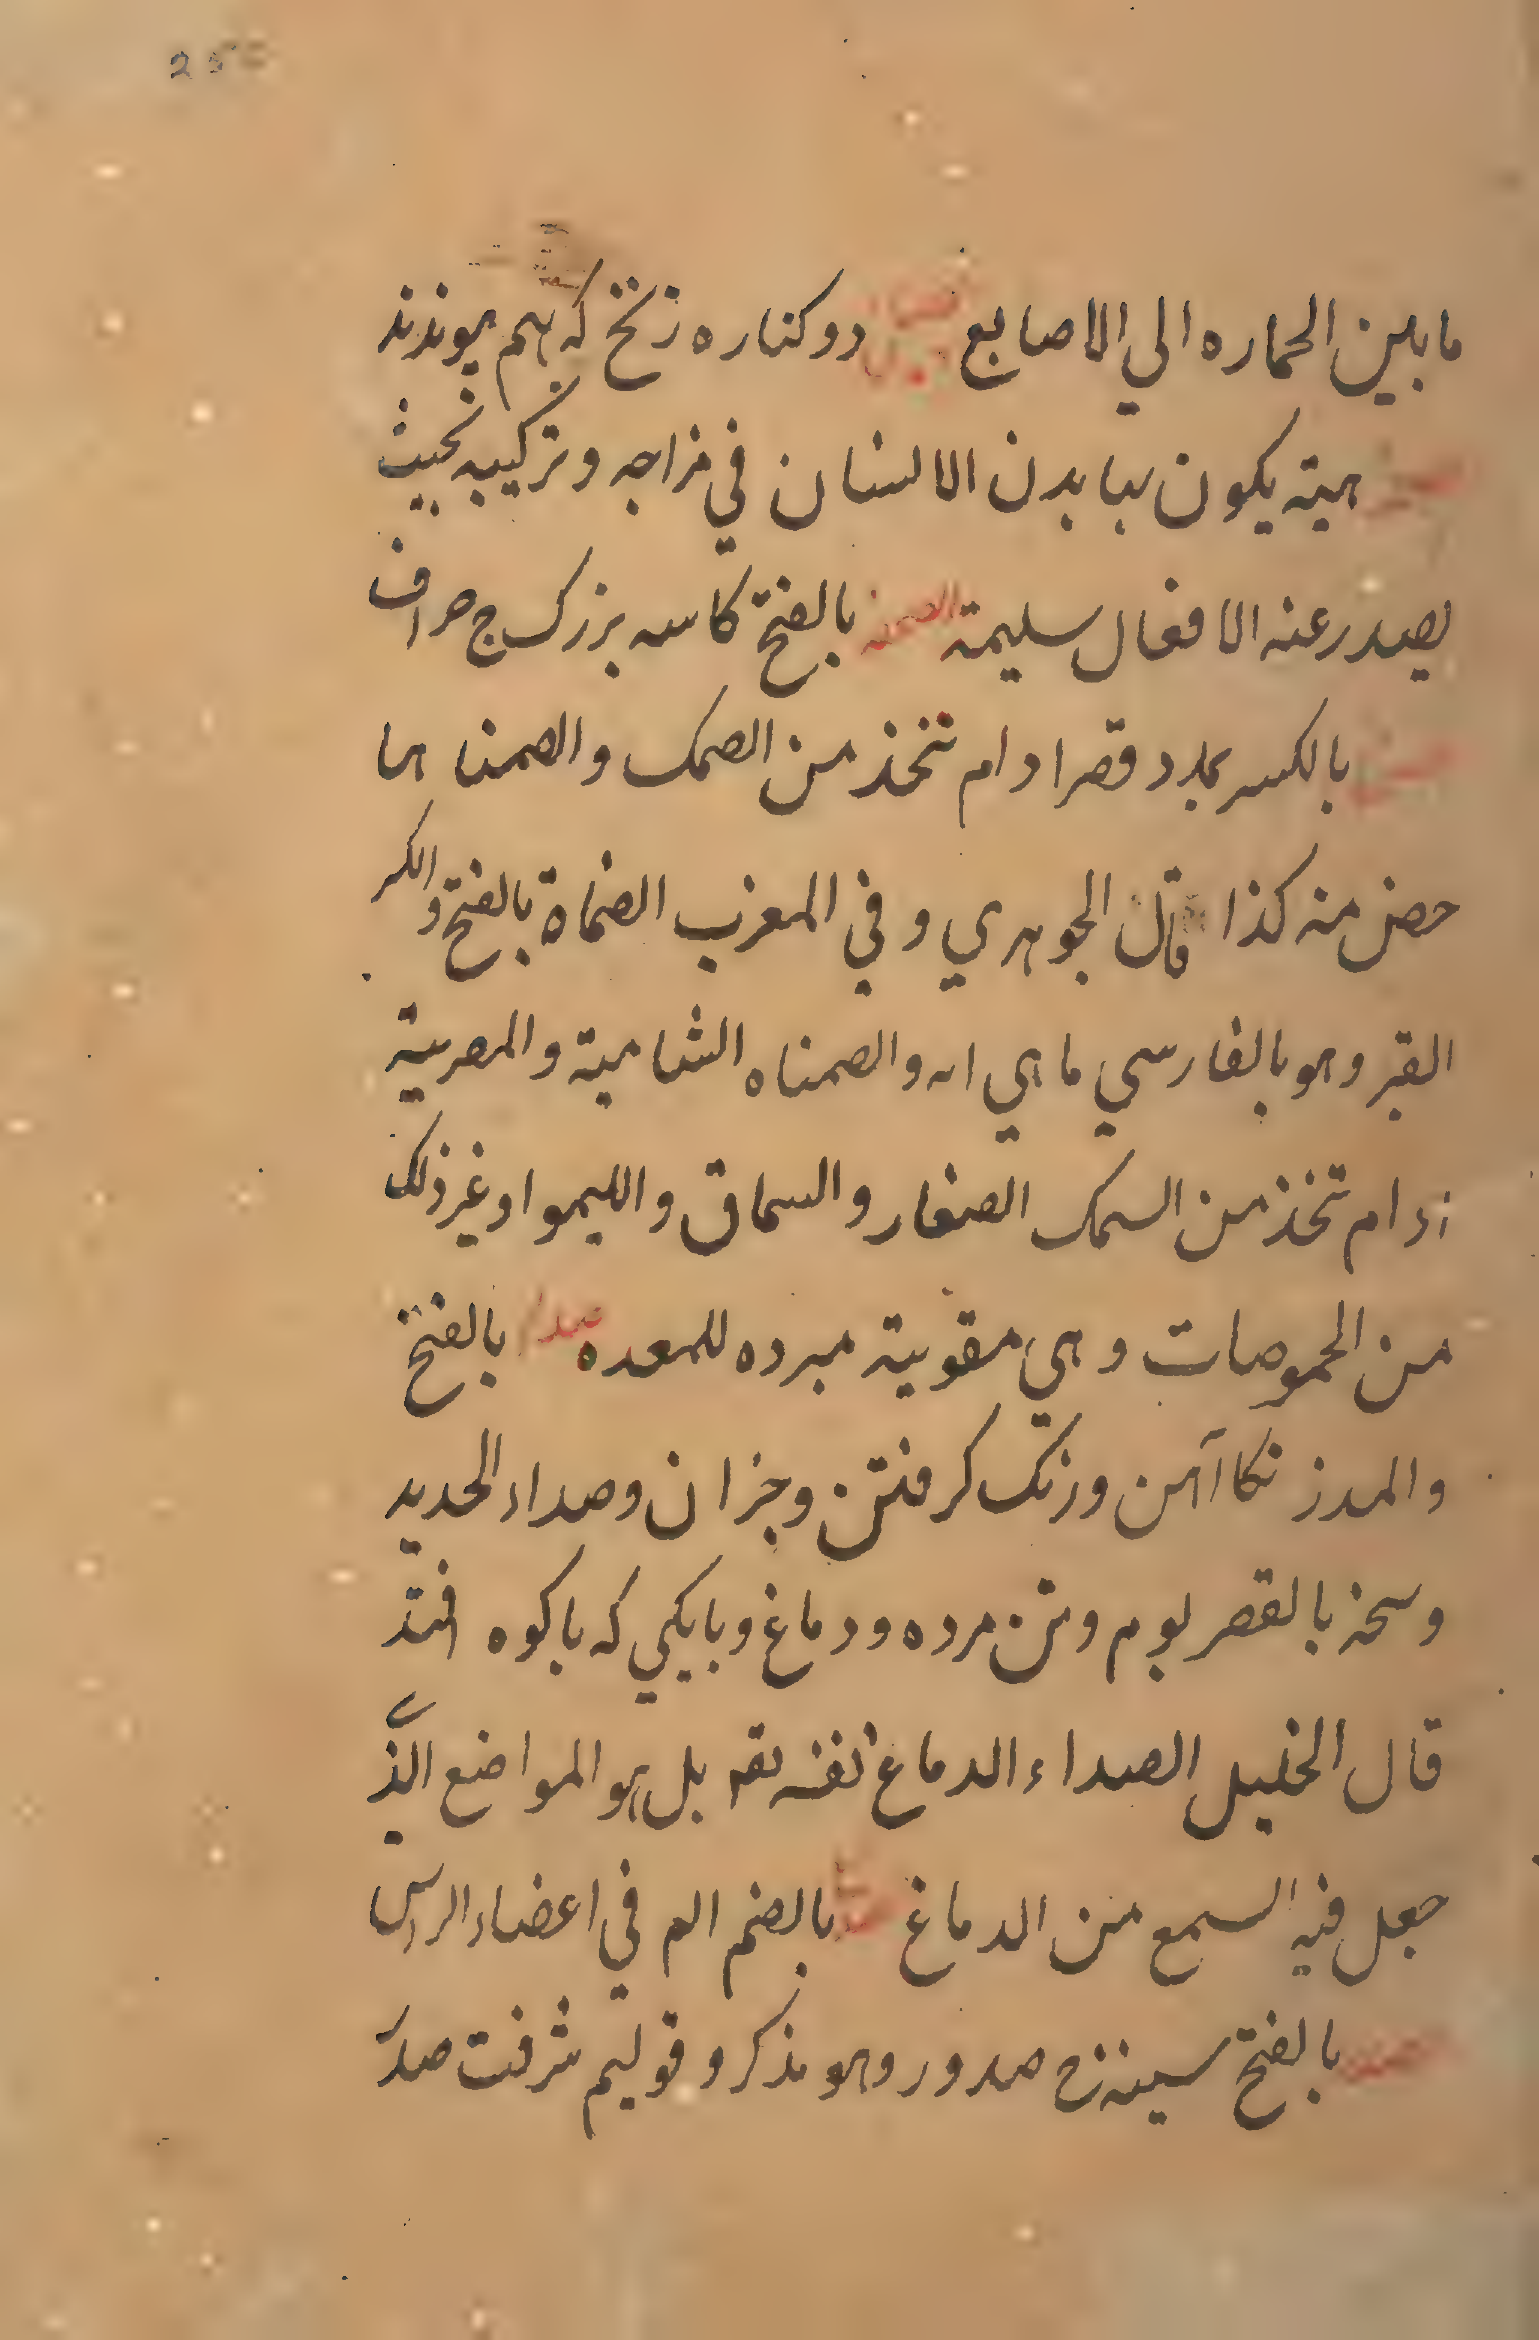 ما بين الحماره الي الاصابع دو كناره زنخ كه بهم پيوندند
هيئة يكون بها بدن الانسان في مزاجه وتركيبه بحيث
يصدر عنه الافعال سليمة الصحفه بالفتح كاسه بزرك ج صراف
بالكسر يمدد وقصرا دام تتخذ من الصمك والصمنا هما
حض منه كذا قال الجوهري و في المغرب الصماة بالفتح والكسر
القبر وهو بالفارسي ماهي ابه والصمناه الشامية والمصرية
ادام تتخذ من السمك الصغار والسماق والليمو او غير ذلك
من الحموصات و هي مقوية مبرده للمعده صدا بالفتح
والمد زنكا آهن وزنك كرفتن وجزان وصداء الحديد
وسخه بالقصر بوم وتن مرده ودماغ وبابكي كه باكوه افتد
قال الخليل الصداء الدماغ نفسه بل هو المواضع الذي
جعل فيه السمع من الدماغ بالضم الم في اعضاء الراس
بالفتح سينه ج صدور وهو مذكر و قوليم شرفت صدر